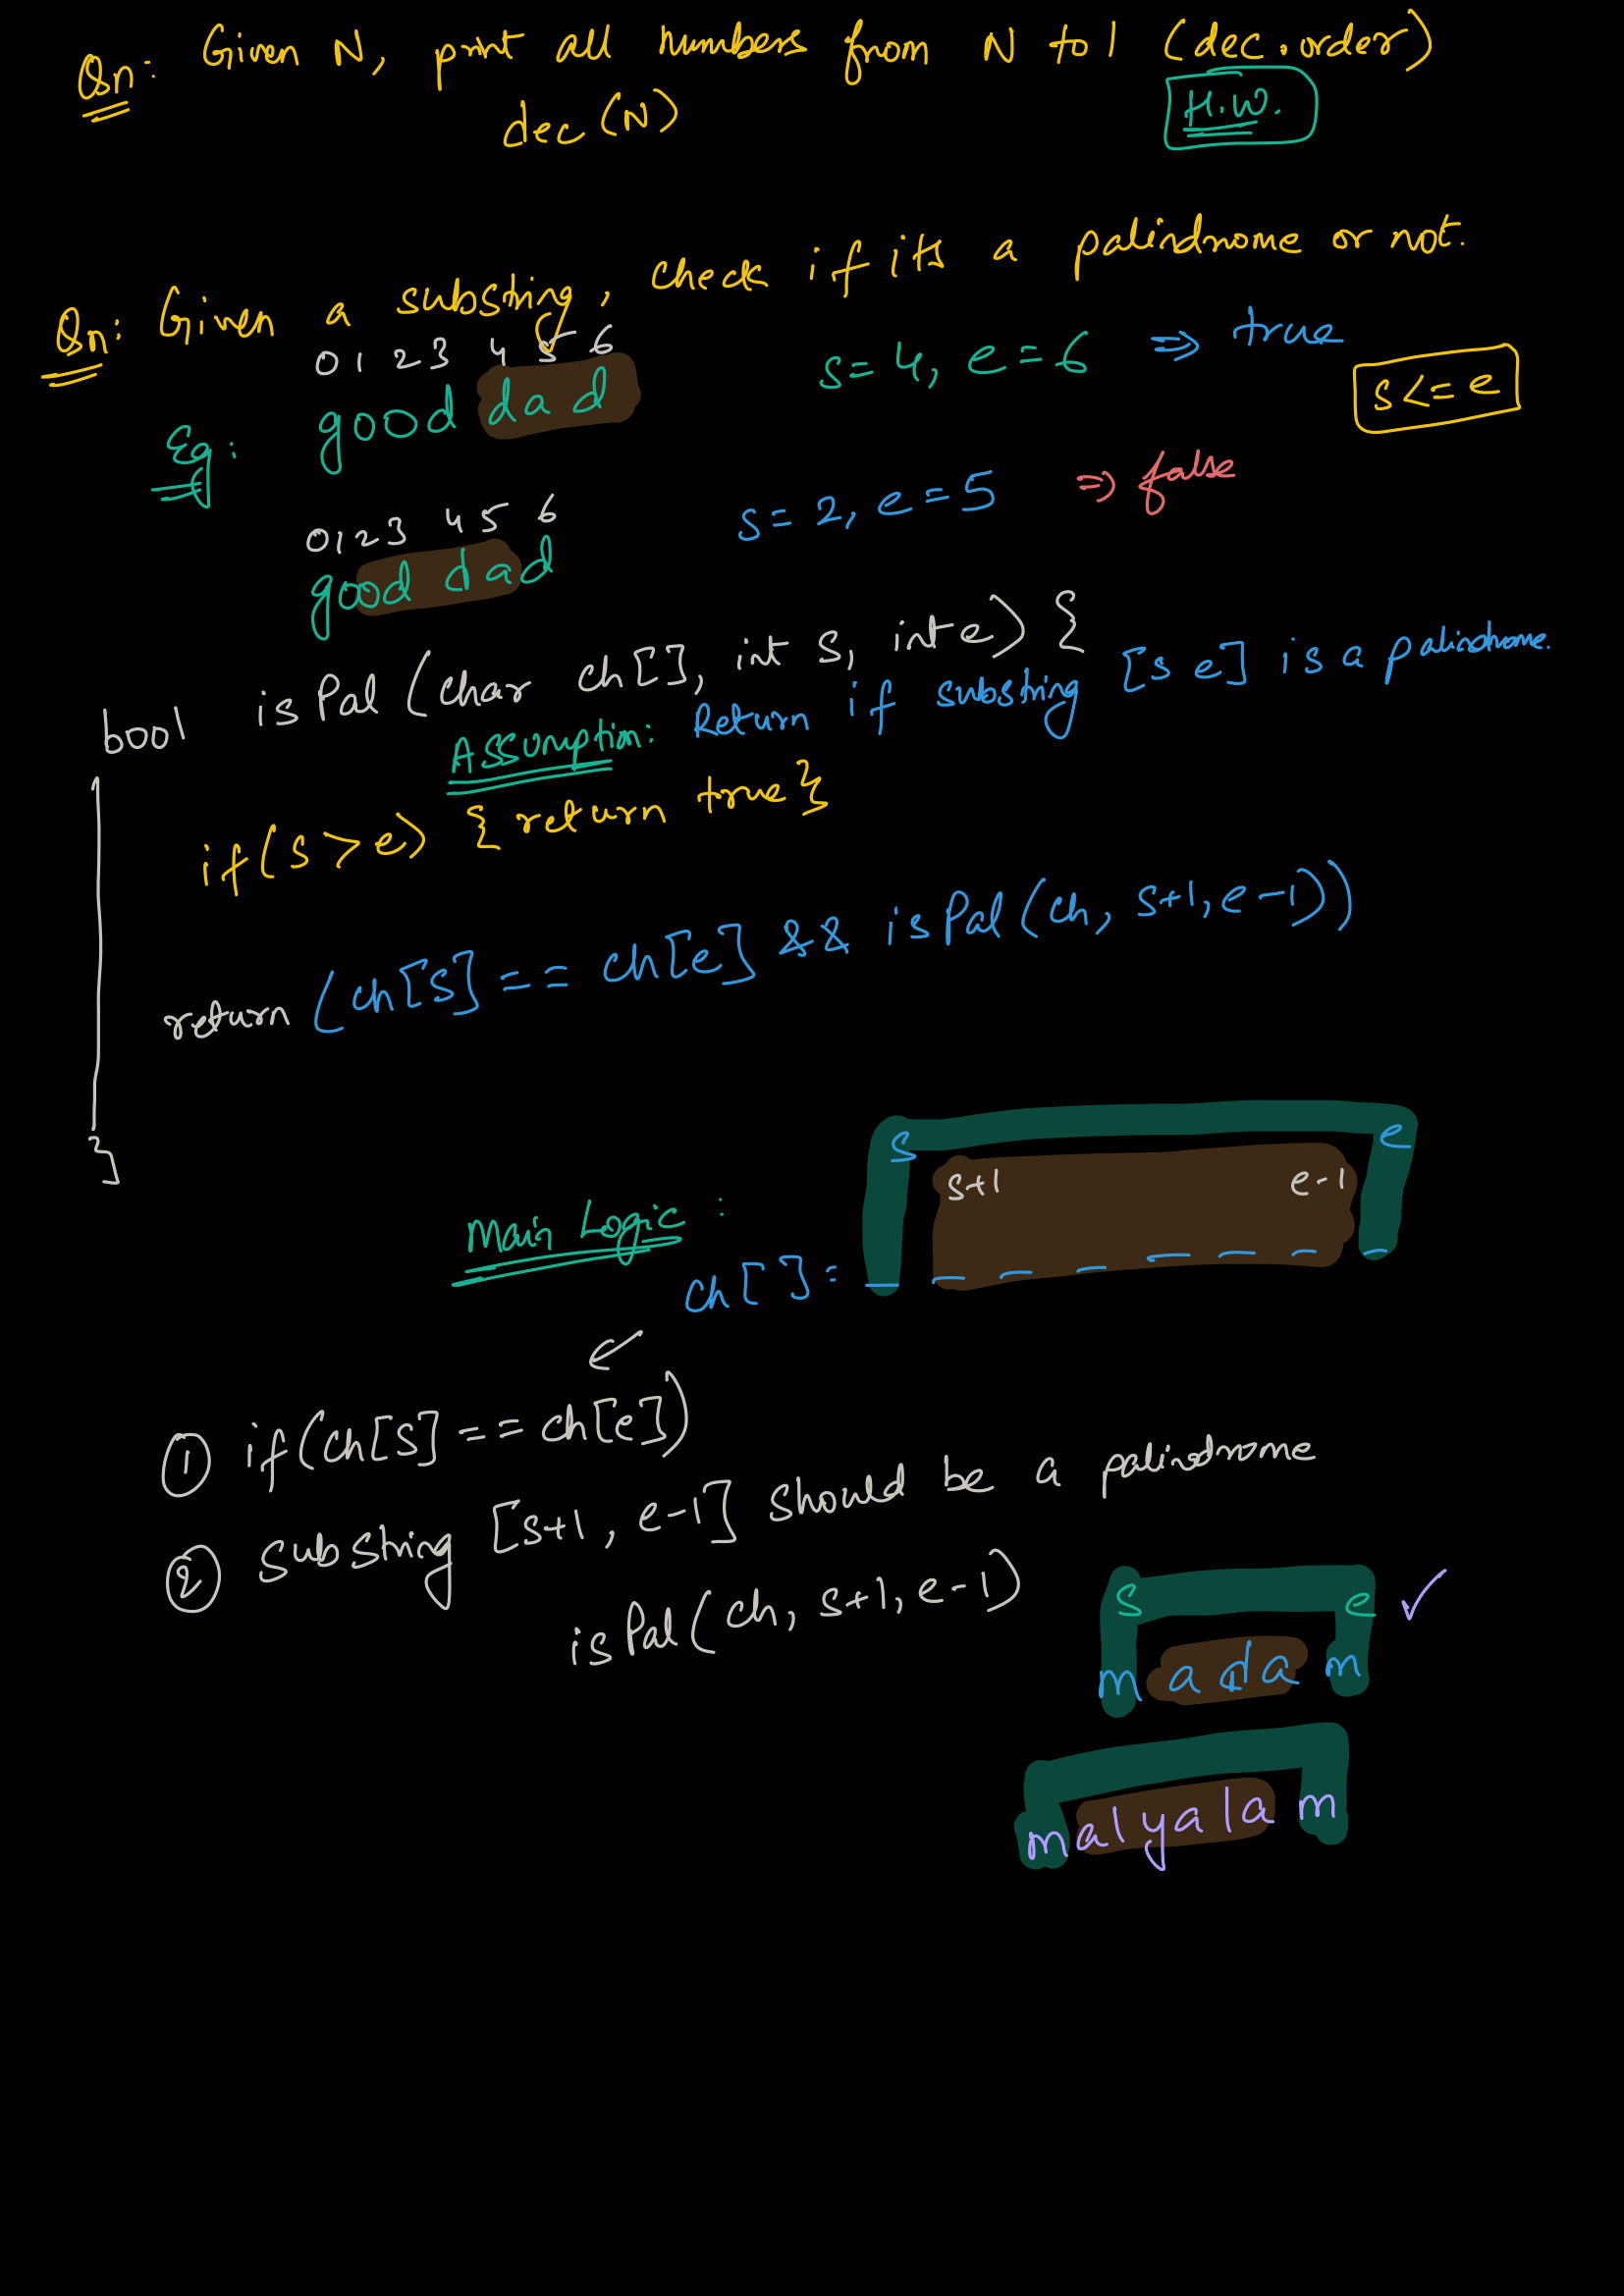 Qn: Given N, print all numbers from N to 1 (dec. order)
dec(N)
H.W.
Qn: Given a substring, check if its a palindrome or not.
0 1 2 3 4 5 6
Eg: good dad s=4, e=6 => true
s<=e
0 1 2 3 4 5 6
good dad s=2, e=5 => false
bool isPal(char ch[], int s, int e) {
Assumption: Return if substring [s e] is a palindrome.
if(s>e) {return true}
return (ch[s]==ch[e] && isPal(ch, s+1, e-1))
}
s e
s+1 e-1
Main Logic:
ch[]:
① if(ch[s]==ch[e])
② substring [s+1, e-1] should be a palindrome
isPal(ch, s+1, e-1)
s e ✓
madam
malyalam